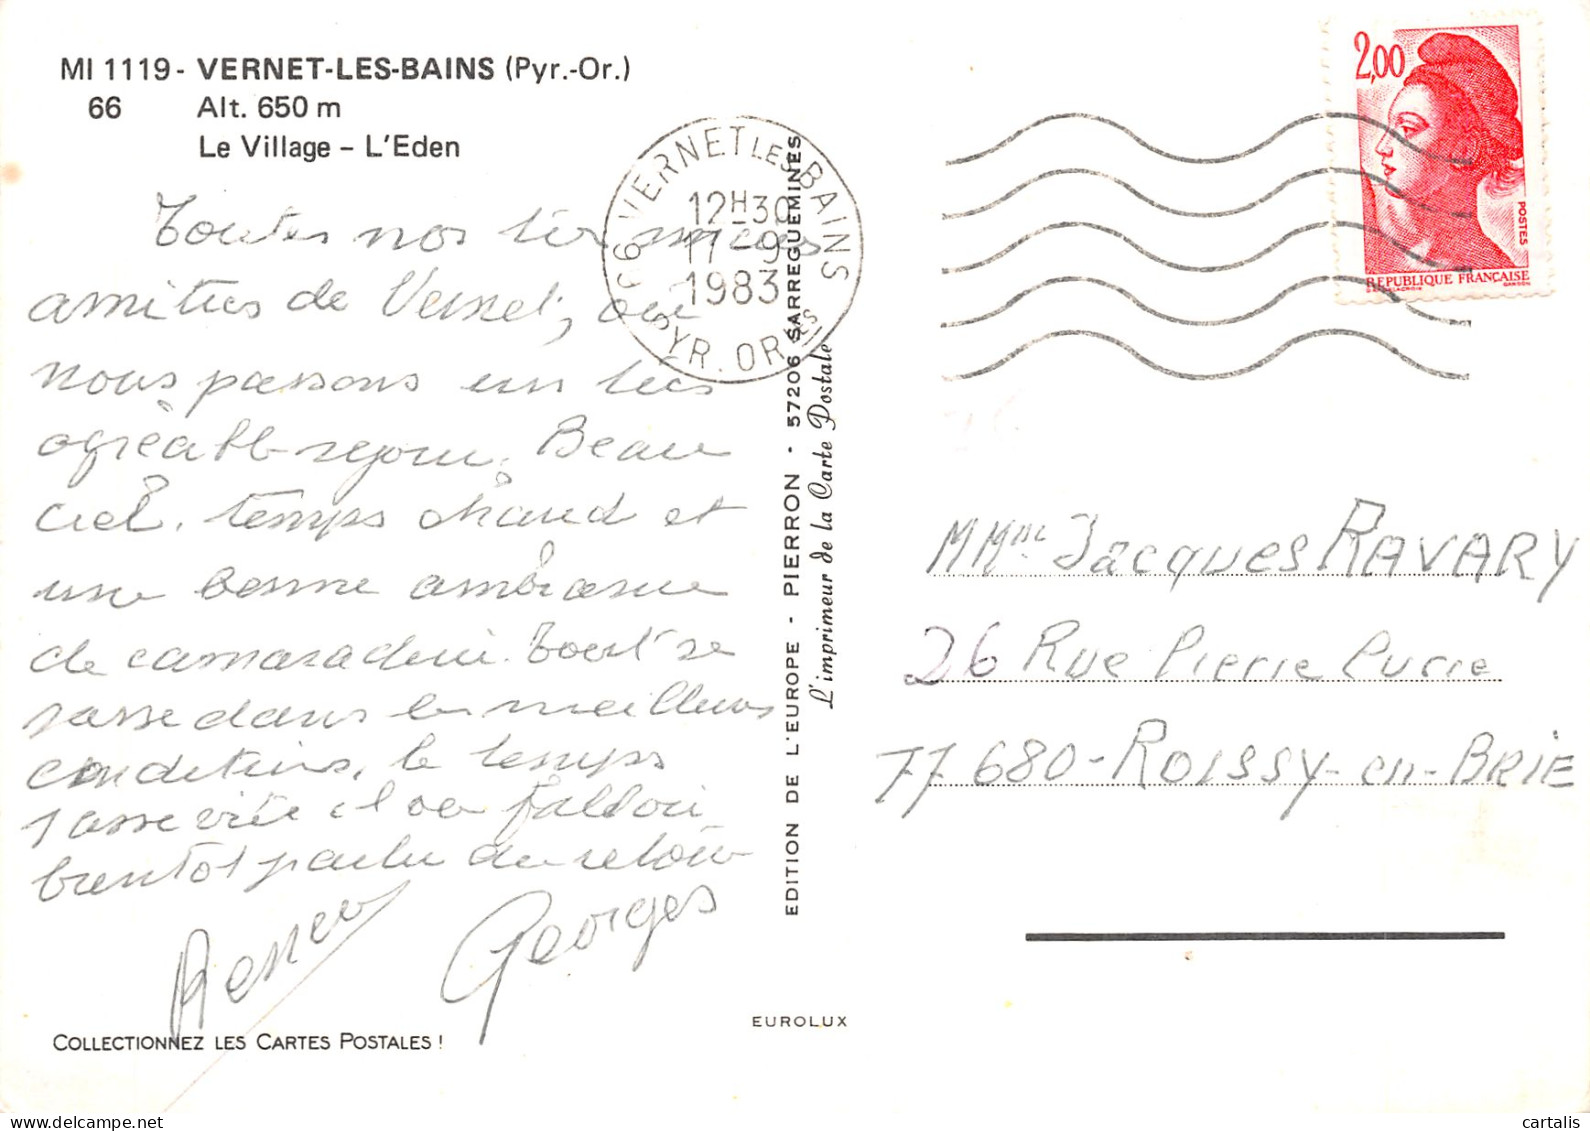 MI 1119 - VERNET-LES-BAINS (Pyr.-Or.)
66 Alt. 650 m
Le Village – L'Eden
Toutes nos
amitiés de Vernet, où
nous passons un très
agréable séjour. Beau
ciel, temps chaud et
une bonne ambiance
de camaraderie. Tout se
passe dans les meilleures
conditions, le temps
passe vite il va falloir
bientôt parler du retour
Georges
COLLECTIONNEZ LES CARTES POSTALES !
66 VERNET LES BAINS
12H30
17-9
1983
PYR. ORLES
EDITION DE L'EUROPE - PIERRON - 57206 SARREGUEMINES
L'imprimeur de la Carte Postale
EUROLUX
2,00
POSTES
REPUBLIQUE FRANÇAISE
MMme Jacques RAVARY
26 Rue Pierre Curie
77 680 - ROISSY-en-BRIE
cartalis